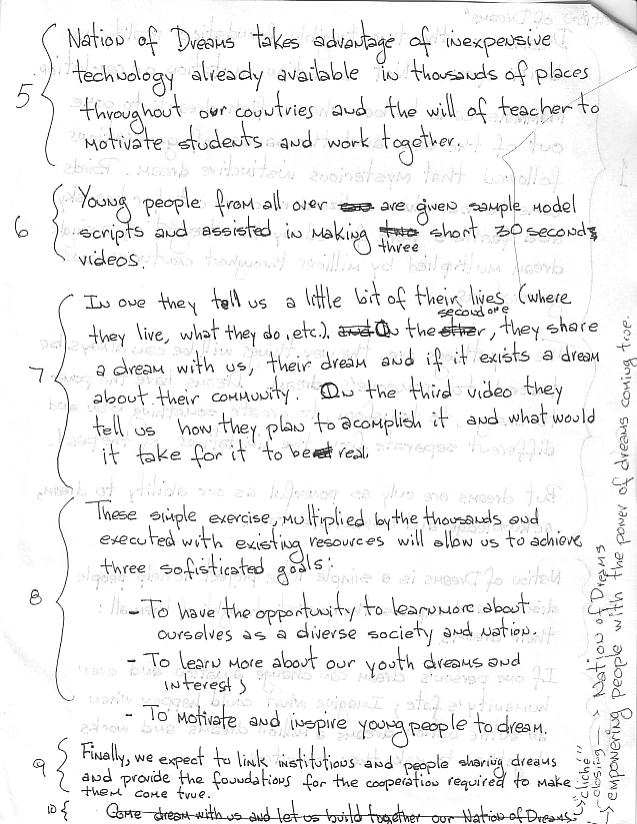 5 Nation of Dreams takes advantage of inexpensive
technology already available in thousands of places
throughout our countries and the will of teacher to
motivate students and work together.
6 Young people from all over are given sample model
scripts and assisted in making two three short 30 seconds
videos.
7 In one they tell us a little bit of their lives (where
they live, what they do, etc.). and On the other second one, they share
a dream with us, their dream and if it exists a dream
about their community. On the third video they
tell us how they plan to acomplish it and what would
it take for it to be real.
8 These simple exercise, multiplied by the thousands and
executed with existing resources will allow us to achieve
three sofisticated goals:
- To have the opportunity to learn more about
ourselves as a diverse society and nation.
- To learn more about our youth dreams and
interests
- To motivate and inspire young people to dream.
9 Finally, we expect to link institutions and people sharing dreams
and provide the foundations for the cooperation required to make
them come true.
10 Come dream with us and let us build together our Nation of Dreams.
"cliche"
closing → Nation of Dreams
→ empowering people with the power of dreams coming true.